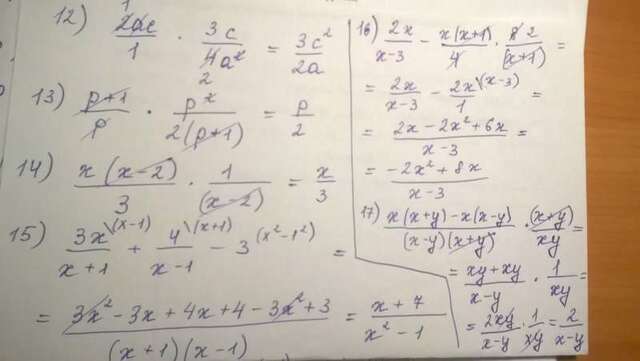 12) 2ac/1 · 3c/4a² = 3c²/2a
13) p+1/p · p²/2(p+1) = p/2
14) x(x-2)/3 · 1/(x-2) = x/3
15) 3x\(x-1)/x+1 + 4\(x+1)/x-1 - 3(x²-1²) =
= 3x²-3x+4x+4-3x²+3/(x+1)(x-1) = x+7/x²-1
16) 2x/x-3 - x(x+1)/4 · 8 2/(x+1) =
= 2x/x-3 - 2x\(x-3)/1 =
= 2x-2x²+6x/x-3 =
= -2x²+8x/x-3
17) x(x+y)-x(x-y)/(x-y)(x+y) · (x+y)/xy =
= xy+xy/x-y · 1/xy =
= 2xy/x-y · 1/xy = 2/x-y